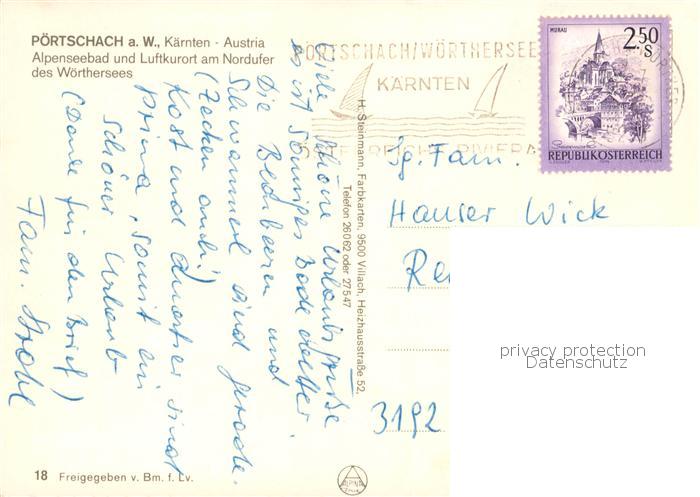 PÖRTSCHACH a. W., Kärnten - Austria
Alpenseebad und Luftkurort am Nordufer
des Wörthersees
PÖRTSCHACH/WÖRTHERSEE
KÄRNTEN
ÖSTERREICHS RIVIERA
MURAU
2.50
S
REPUBLIK ÖSTERREICH
Viele schöne Urlaubsgrüße
es ist sonniges Badewetter
Die Beerbeeren und
Schwammerl sind gerade.
(Zecken auch!)
Kost und Quartier sind
Prima, somit ein
schöner Urlaub
(Danke für den Brief)
Fam. Strohl
H. Steinmann, Farbkarten, 9500 Villach, Heizhausstraße 52,
Telefon 26062 oder 27547
Fam.
Hauser Wick
Re
3192
privacy protection
Datenschutz
18 Freigegeben v. Bm. f. Lv.
ALPINA